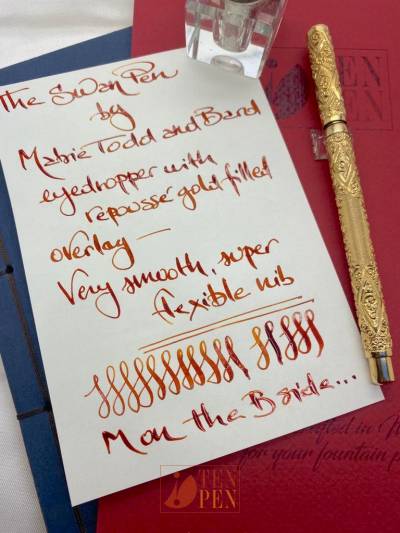 The Swan Pen
by
Mabie Todd and Bard
eyedropper with
repousse gold filled
overlay —
Very smooth, super
flexible nib
M on the B side...
TEN
PEN
TEN
PEN
for your fountain p